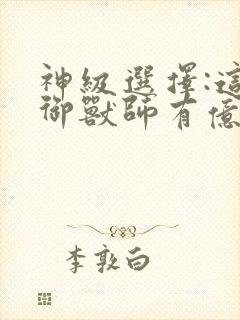 神級選擇:這
御獸師有億
李敦白